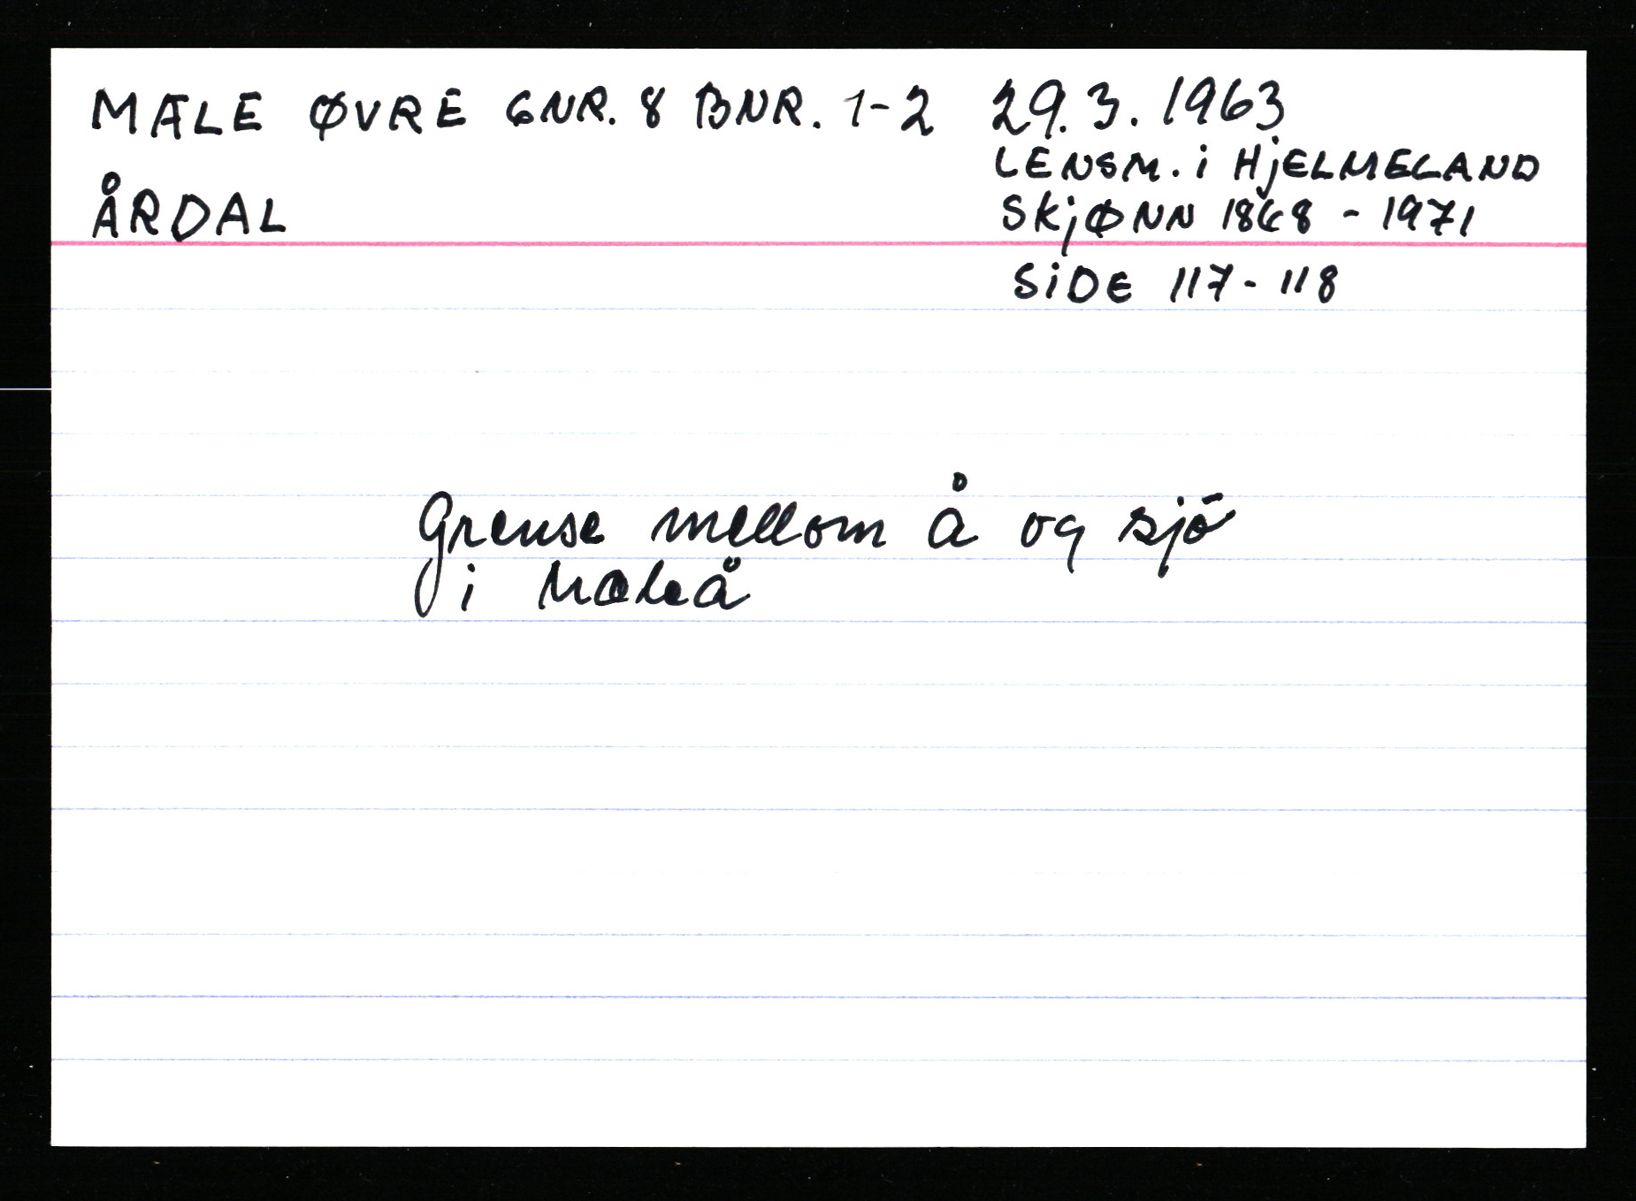 MÆLE ØVRE GNR. 8 BNR. 1-2 29.3.1963
LENSM. i HjELMELAND
ÅRDAL
SkjØNN 1868 - 1971
SiDE 117-118
Grense mellom å og sjö
i Mæleå